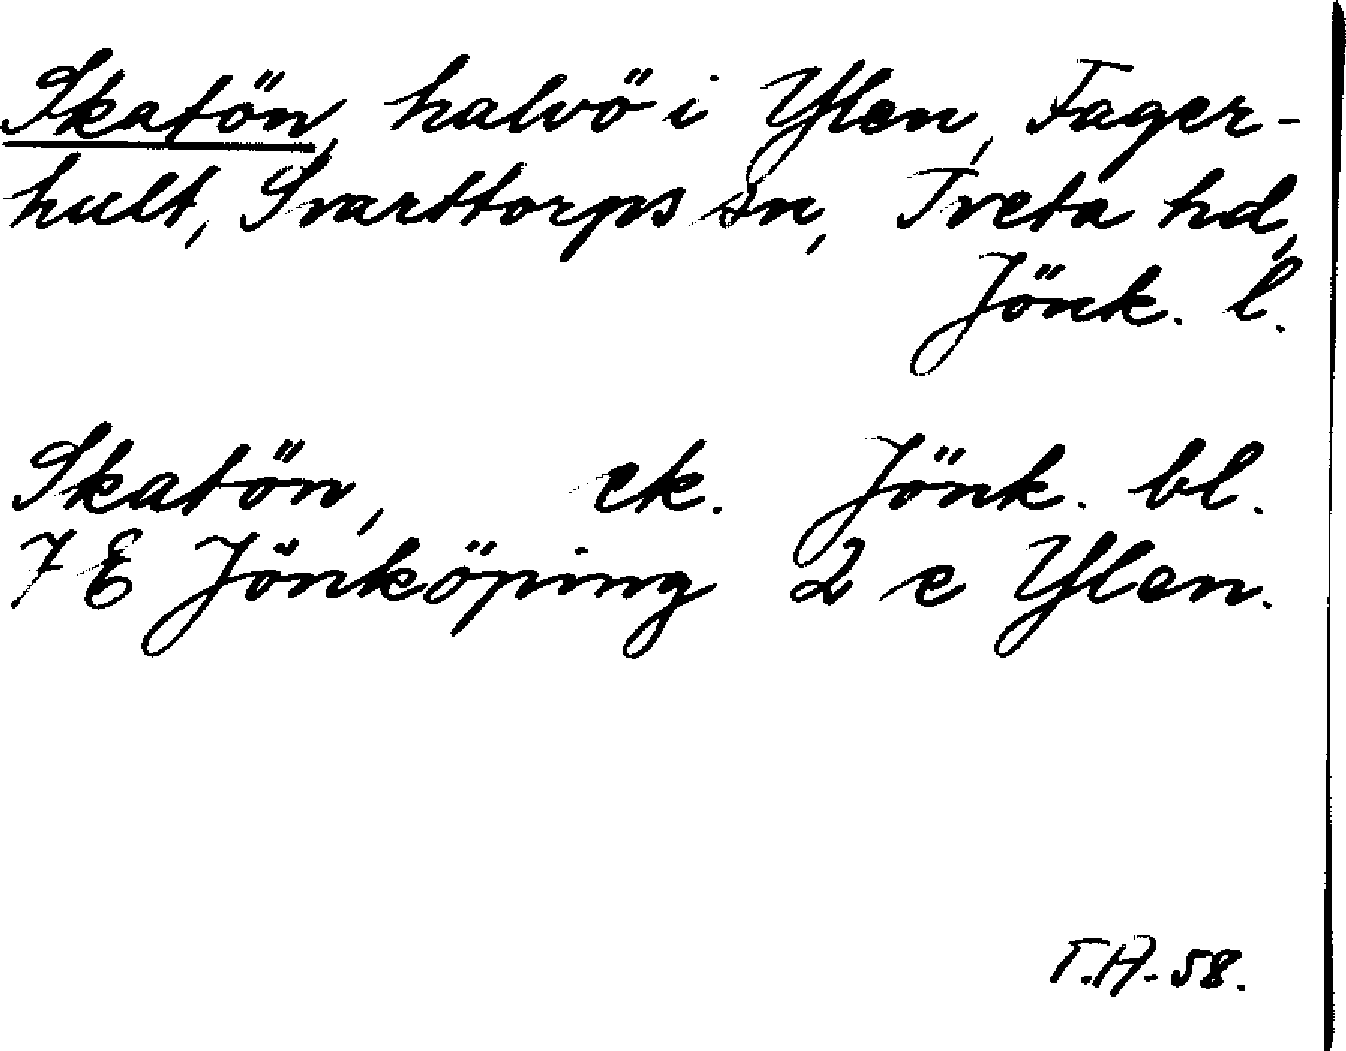 Skatön, halvö i Ylen, Fager-
hult, Svarttorps sn, Tveta hd,
Jönk. l.
Skatön, ek. Jönk. bl.
7 E Jönköping 2 e Ylen.
T.A. 58.